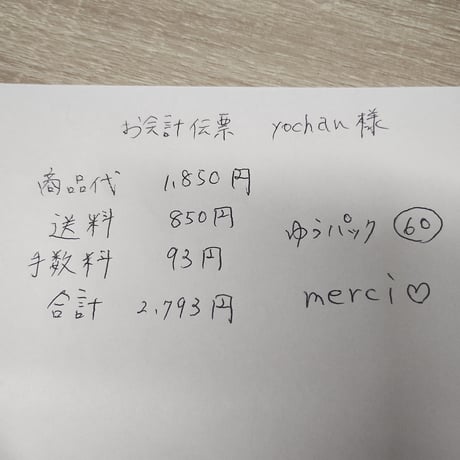 お会計伝票 yochan様
商品代 1,850円
送料 850円
手数料 93円
合計 2,793円
ゆうパック 60
merci♡